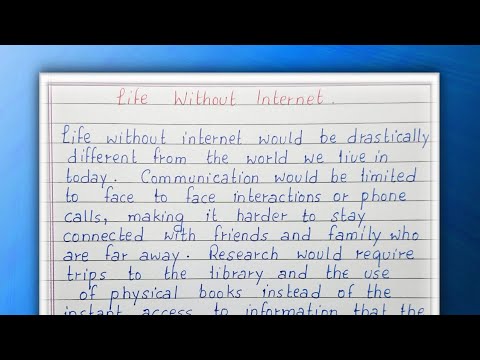 Life Without Internet.
Life without internet would be drastically
different from the world we live in
today. Communication would be limited
to face to face interactions or phone
calls, making it harder to stay
connected with friends and family who
are far away. Research would require
trips to the library and the use
of physical books instead of the
instant access to information that the